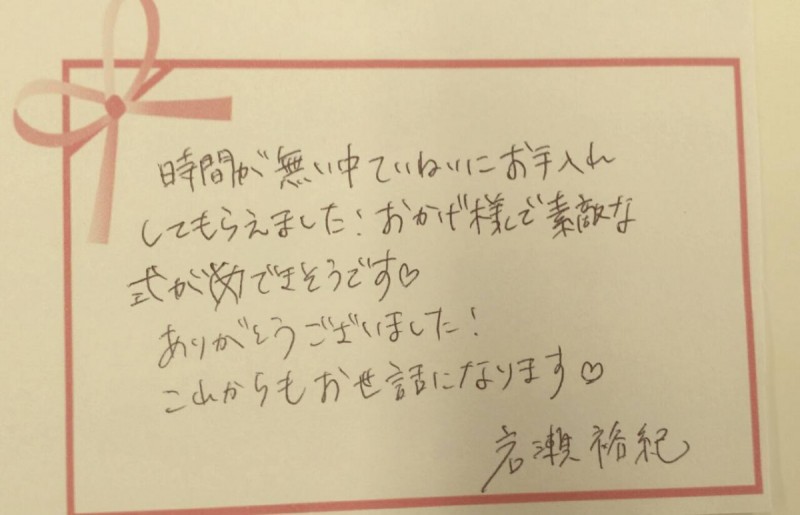 時間が無い中ていねいにお手入れ
してもらえました！おかげ様で素敵な
式ができそうです♡
ありがとうございました！
これからもお世話になります♡
岩瀬裕紀